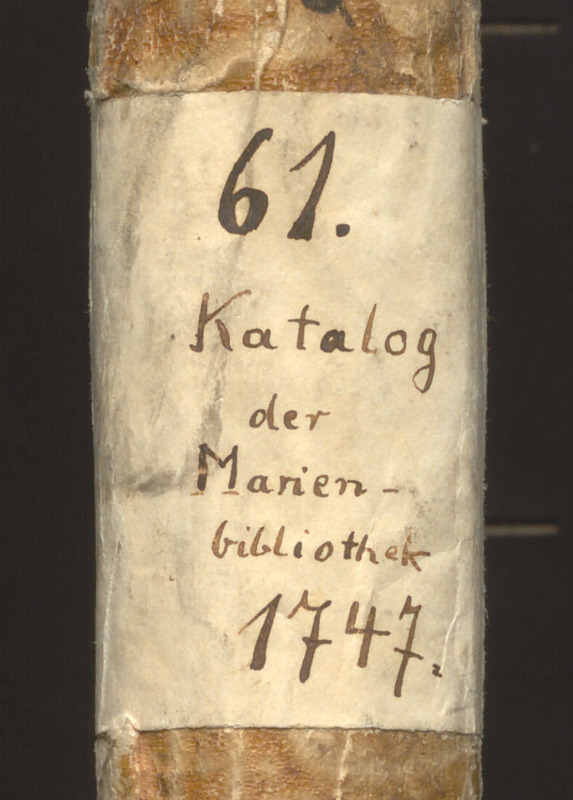 61.
Katalog
der
Marien-
bibliothek
1747.